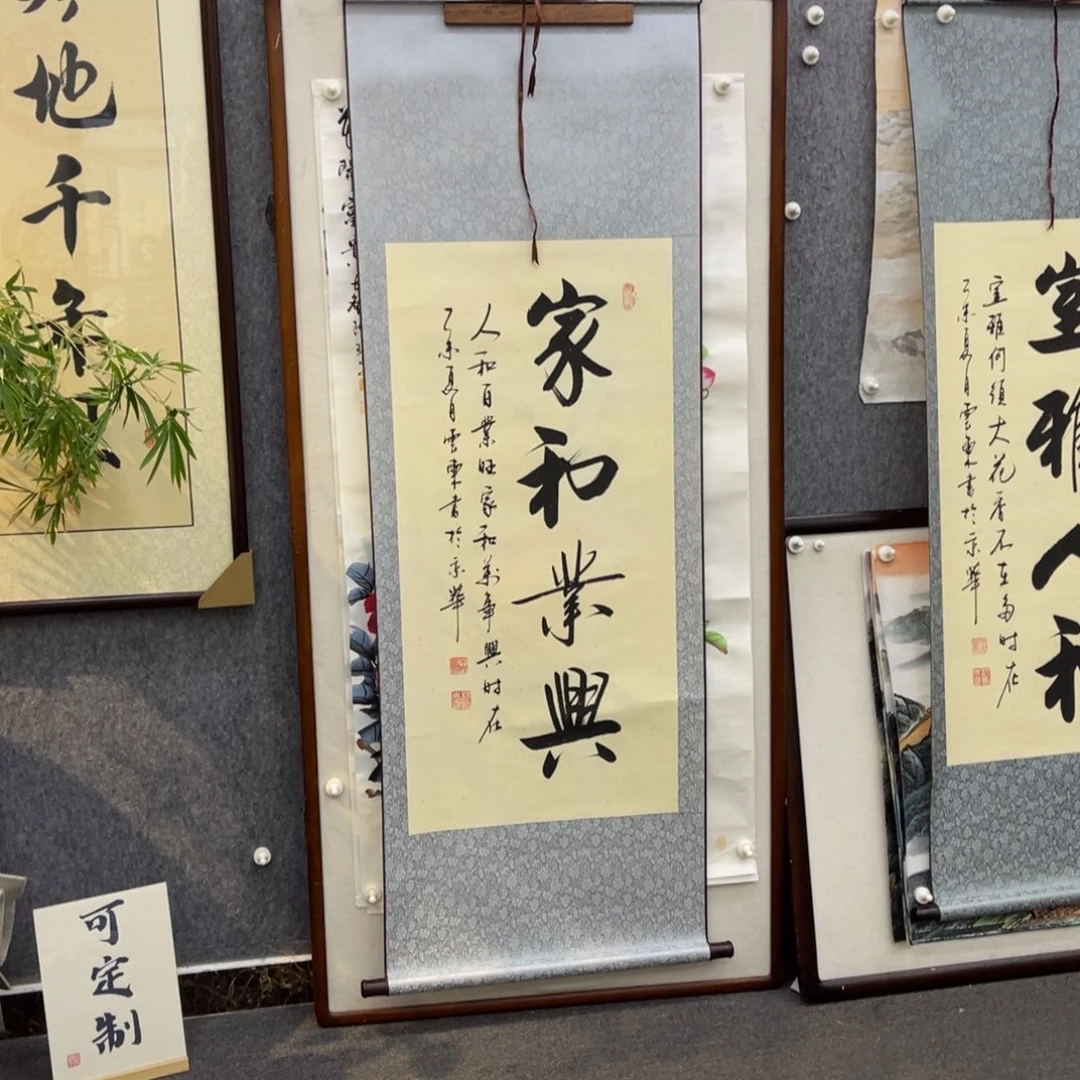 地千年
花開富貴
家和業興
人和百業旺家和萬事興时在
乙未夏月雲東書於京華
室雅人和
室雅何須大花香不在多时在
乙未夏月雲東書於京華
可定制